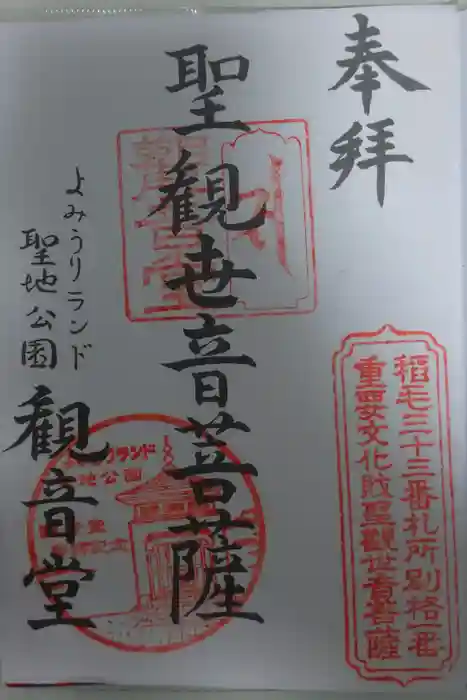 奉拝
稲毛三十三番札所別格一番
重要文化財聖観世音菩薩
聖観世音菩薩
観音堂
よみうりランド
聖地公園
観音堂
ランド
地公園